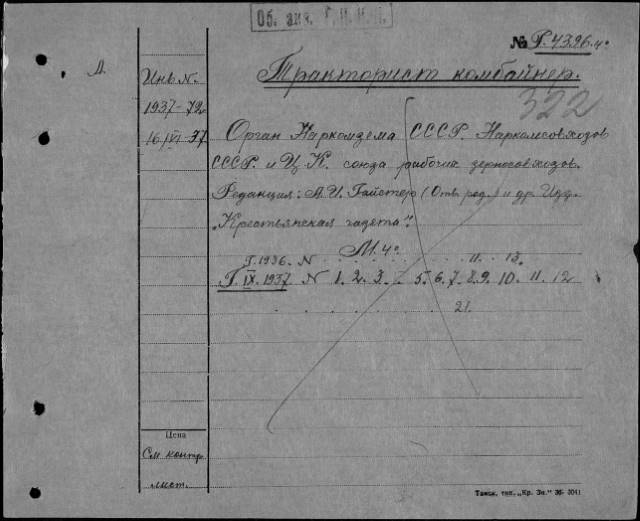 Об. экз. Г.П.И.П.
№ Г. 4396.4º
Д.
Тракторист комбайнер.
322
Инв N.
1937-72
16/VI-37
Орган Наркомзема СССР. Наркомсовхозов
СССР. и Ц.К. союза рабочих зерносовхозов.
Редакция: А.И. Гайстер (Отв. ред.) и др. Изд.
"Крестьянская газета".
М. 4º
Г. 1936. N . . . . . . . . . . 11. . 13.
Г. IX. 1937 N 1. 2. 3. . 5. 6. 7. 8. 9. 10. 11. 12
21.
Цена
См контр.
лист.
Тамск. тип. „Кр. Зн." 36- 3041